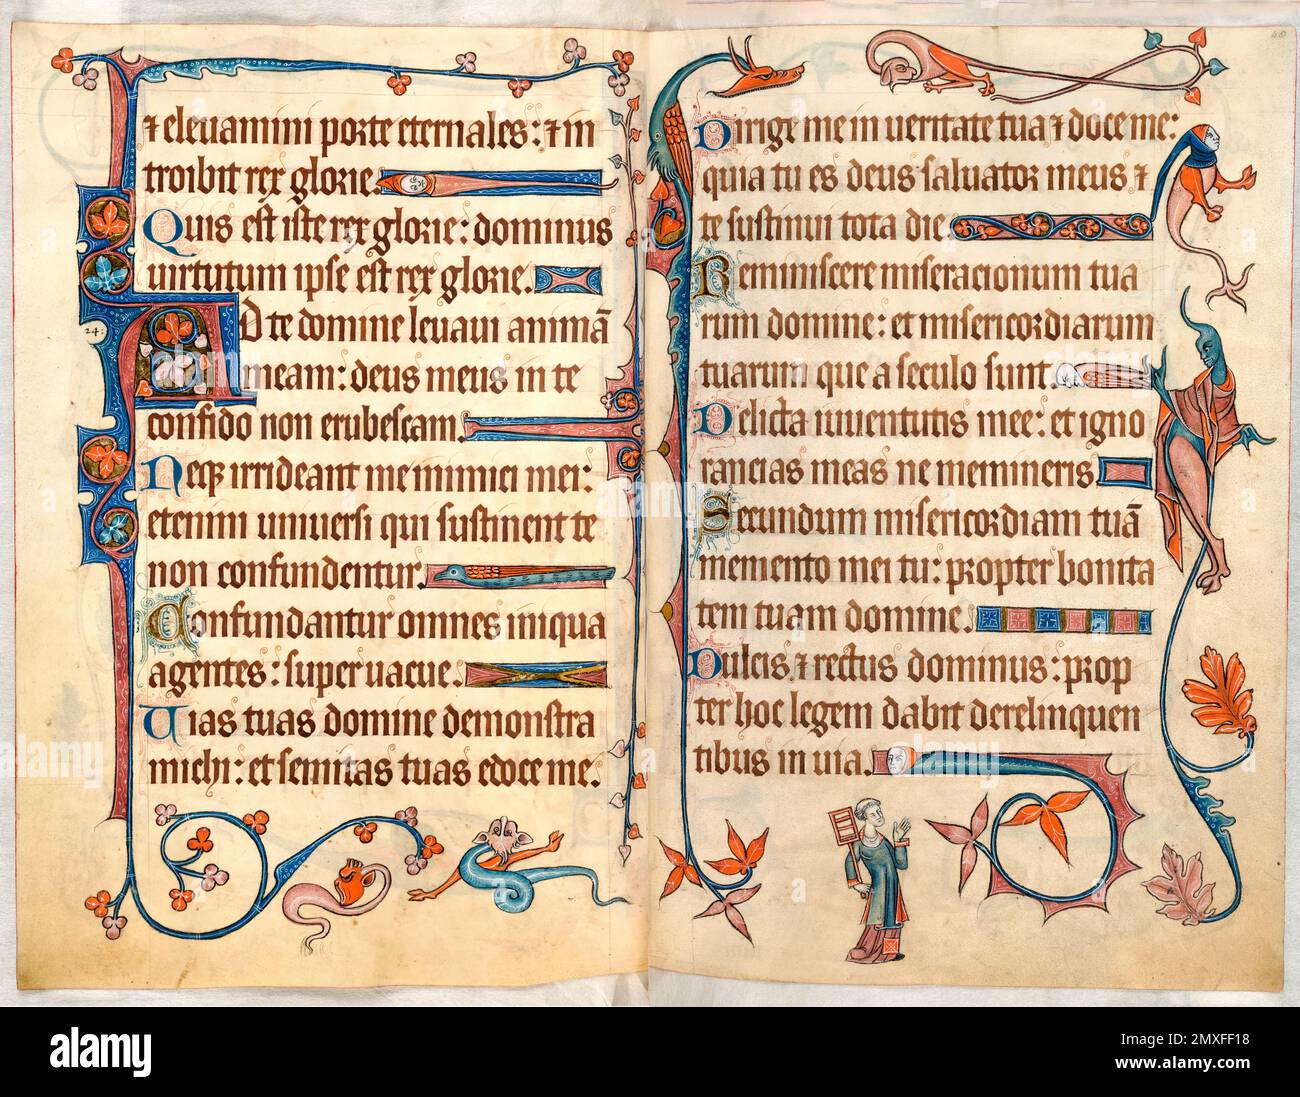 ⁊ elevamini porte eternales: ⁊ in
troibit rex glorie.
Quis est iste rex glorie: dominus
uirtutum ipse est rex glorie.
24:
AD te domine levavi animā
meam: deus meus in te
confido non erubescam.
Neq3 irrideant me inimici mei:
etenim universi qui sustinent te
non confundentur.
Confundantur omnes iniqua
agentes: supervacue.
Uias tuas domine demonstra
michi: et semitas tuas edoce me.
40
Dirige me in veritate tua ⁊ doce me:
quia tu es deus salvator meus ⁊
te sustinui tota die.
Reminiscere miseracionum tua
rum domine: et misericordiarum
tuarum que a seculo sunt.
Delicta iuventutis mee: et igno
rancias meas ne memineris.
Secundum misericordiam tuā
memento mei tu: propter bonita
tem tuam domine.
Dulcis ⁊ rectus dominus: prop
ter hoc legem dabit derelinquen
tibus in uia.
alamy
Image ID: 2MXFF18
www.alamy.com